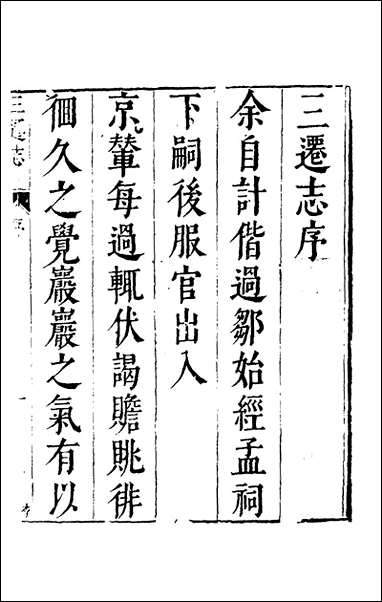 三遷志序
余自計偕過鄒始經孟祠
下嗣後服官出入
京輦每過輒伏謁瞻眺徘
徊久之覺巖巖之氣有以
三遷志
序